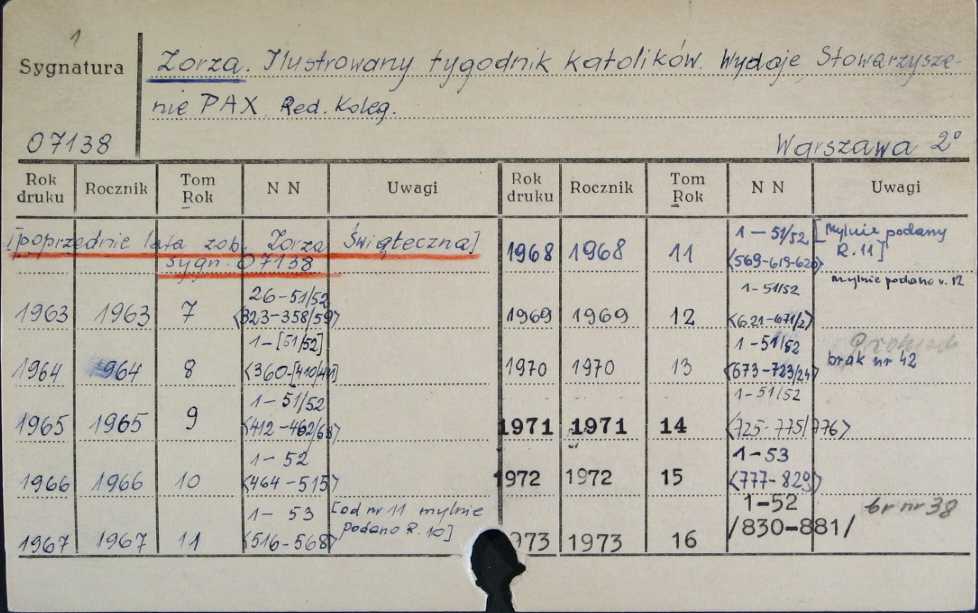 1
Sygnatura
Zorza. Ilustrowany tygodnik katolików. Wydaje Stowarzysze-
nie PAX Red. Koleg.
07138
Warszawa 2°
Rok druku Rocznik Tom Rok NN Uwagi
[poprzednie lata zob. Zorza Świąteczna]
sygn. 07138
26-51/52
1963 1963 7 <323-358/59>
1-[51/52]
1964 1964 8 <360-[410/411]
1-51/52
1965 1965 9 <412-462/63>
1-52
1966 1966 10 <464-515>
1-53 [od nr 11 mylnie
podano R. 10]
1967 1967 11 <516-568>
Rok druku Rocznik Tom Rok NN Uwagi
1-51/52 [Mylnie podany
R. 11]
1968 1968 11 <569-619-620>
1-51/52 mylnie podano v. 12
1969 1969 12 <621-671/2>
1-51/52
brak nr 42
1970 1970 13 <673-723/24>
1-51/52
1971 1971 14 <725-775/776>
1-53
1972 1972 15 <777-829>
1-52 br nr 38
1973 1973 16 /830-881/